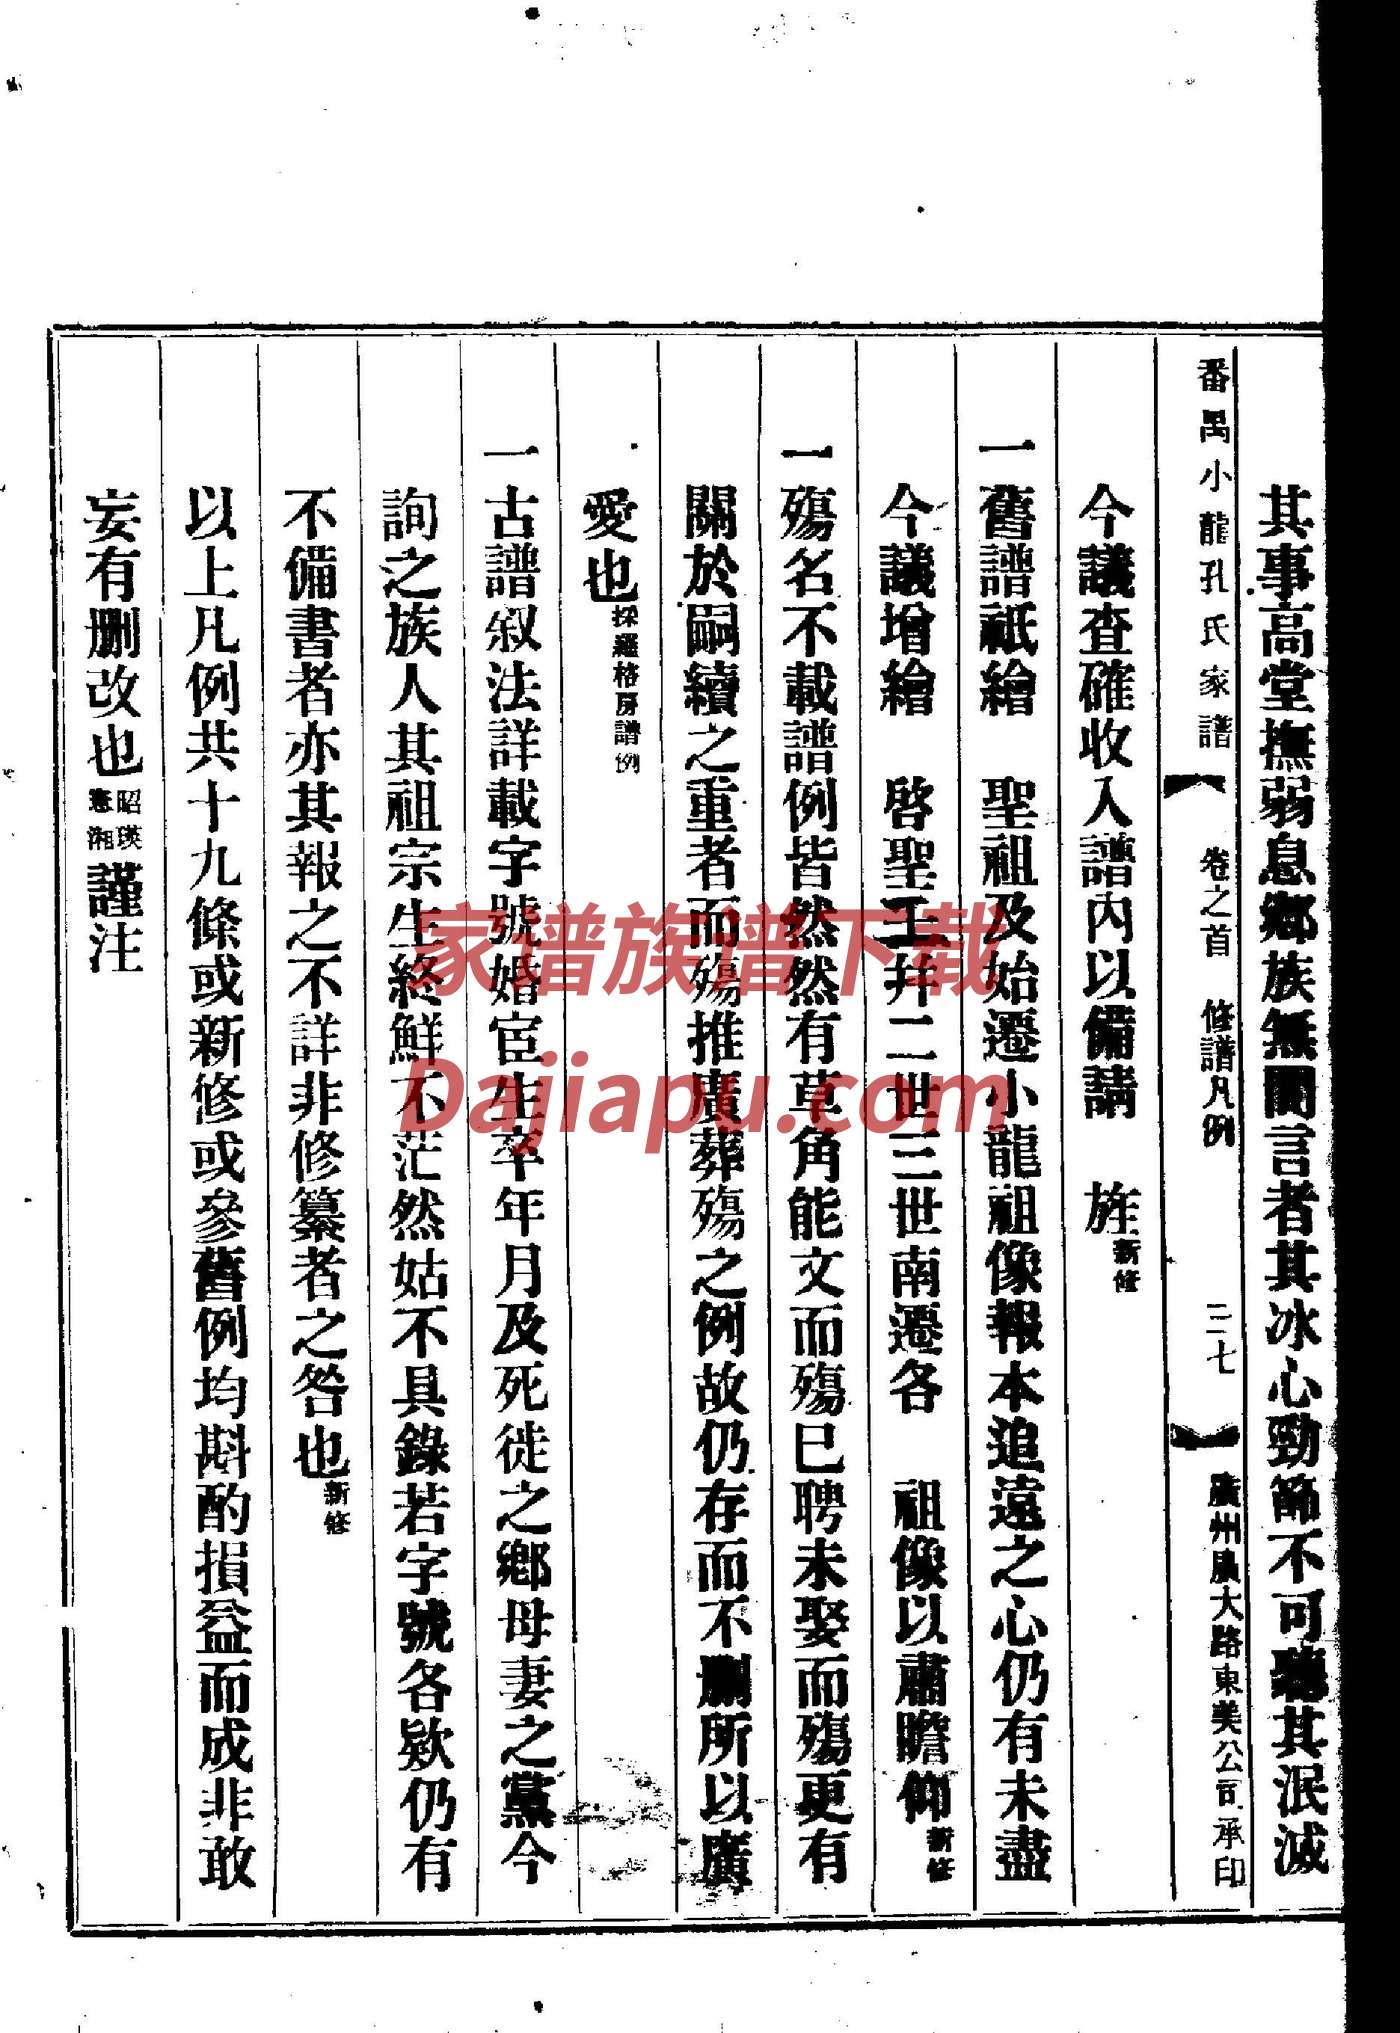 其事高堂撫弱息鄉族無間言者其冰心勁節不可聽其泯滅
番禺小龍孔氏家譜
卷之首
修譜凡例
二七
廣州惠大路東美公司承印
今議查確收入譜內以備請 旌新修
一舊譜祇繪 聖祖及始遷小龍祖像報本追遠之心仍有未盡
今議增繪 啓聖王并二世三世南遷各 祖像以肅瞻仰新修
一殤名不載譜例皆然然有草角能文而殤已聘未娶而殤更有
關於嗣續之重者而殤推廣葬殤之例故仍存而不刪所以廣
愛也採羅格房譜例
一古譜敍法詳載字號婚宦生卒年月及死徙之鄉母妻之黨今
詢之族人其祖宗生終鮮不茫然姑不具錄若字號各欵仍有
不備書者亦其報之不詳非修纂者之咎也新修
以上凡例共十九條或新修或參舊例均斟酌損益而成非敢
妄有刪改也昭瑛憲湘謹注
家谱族谱下载
Dajiapu.com